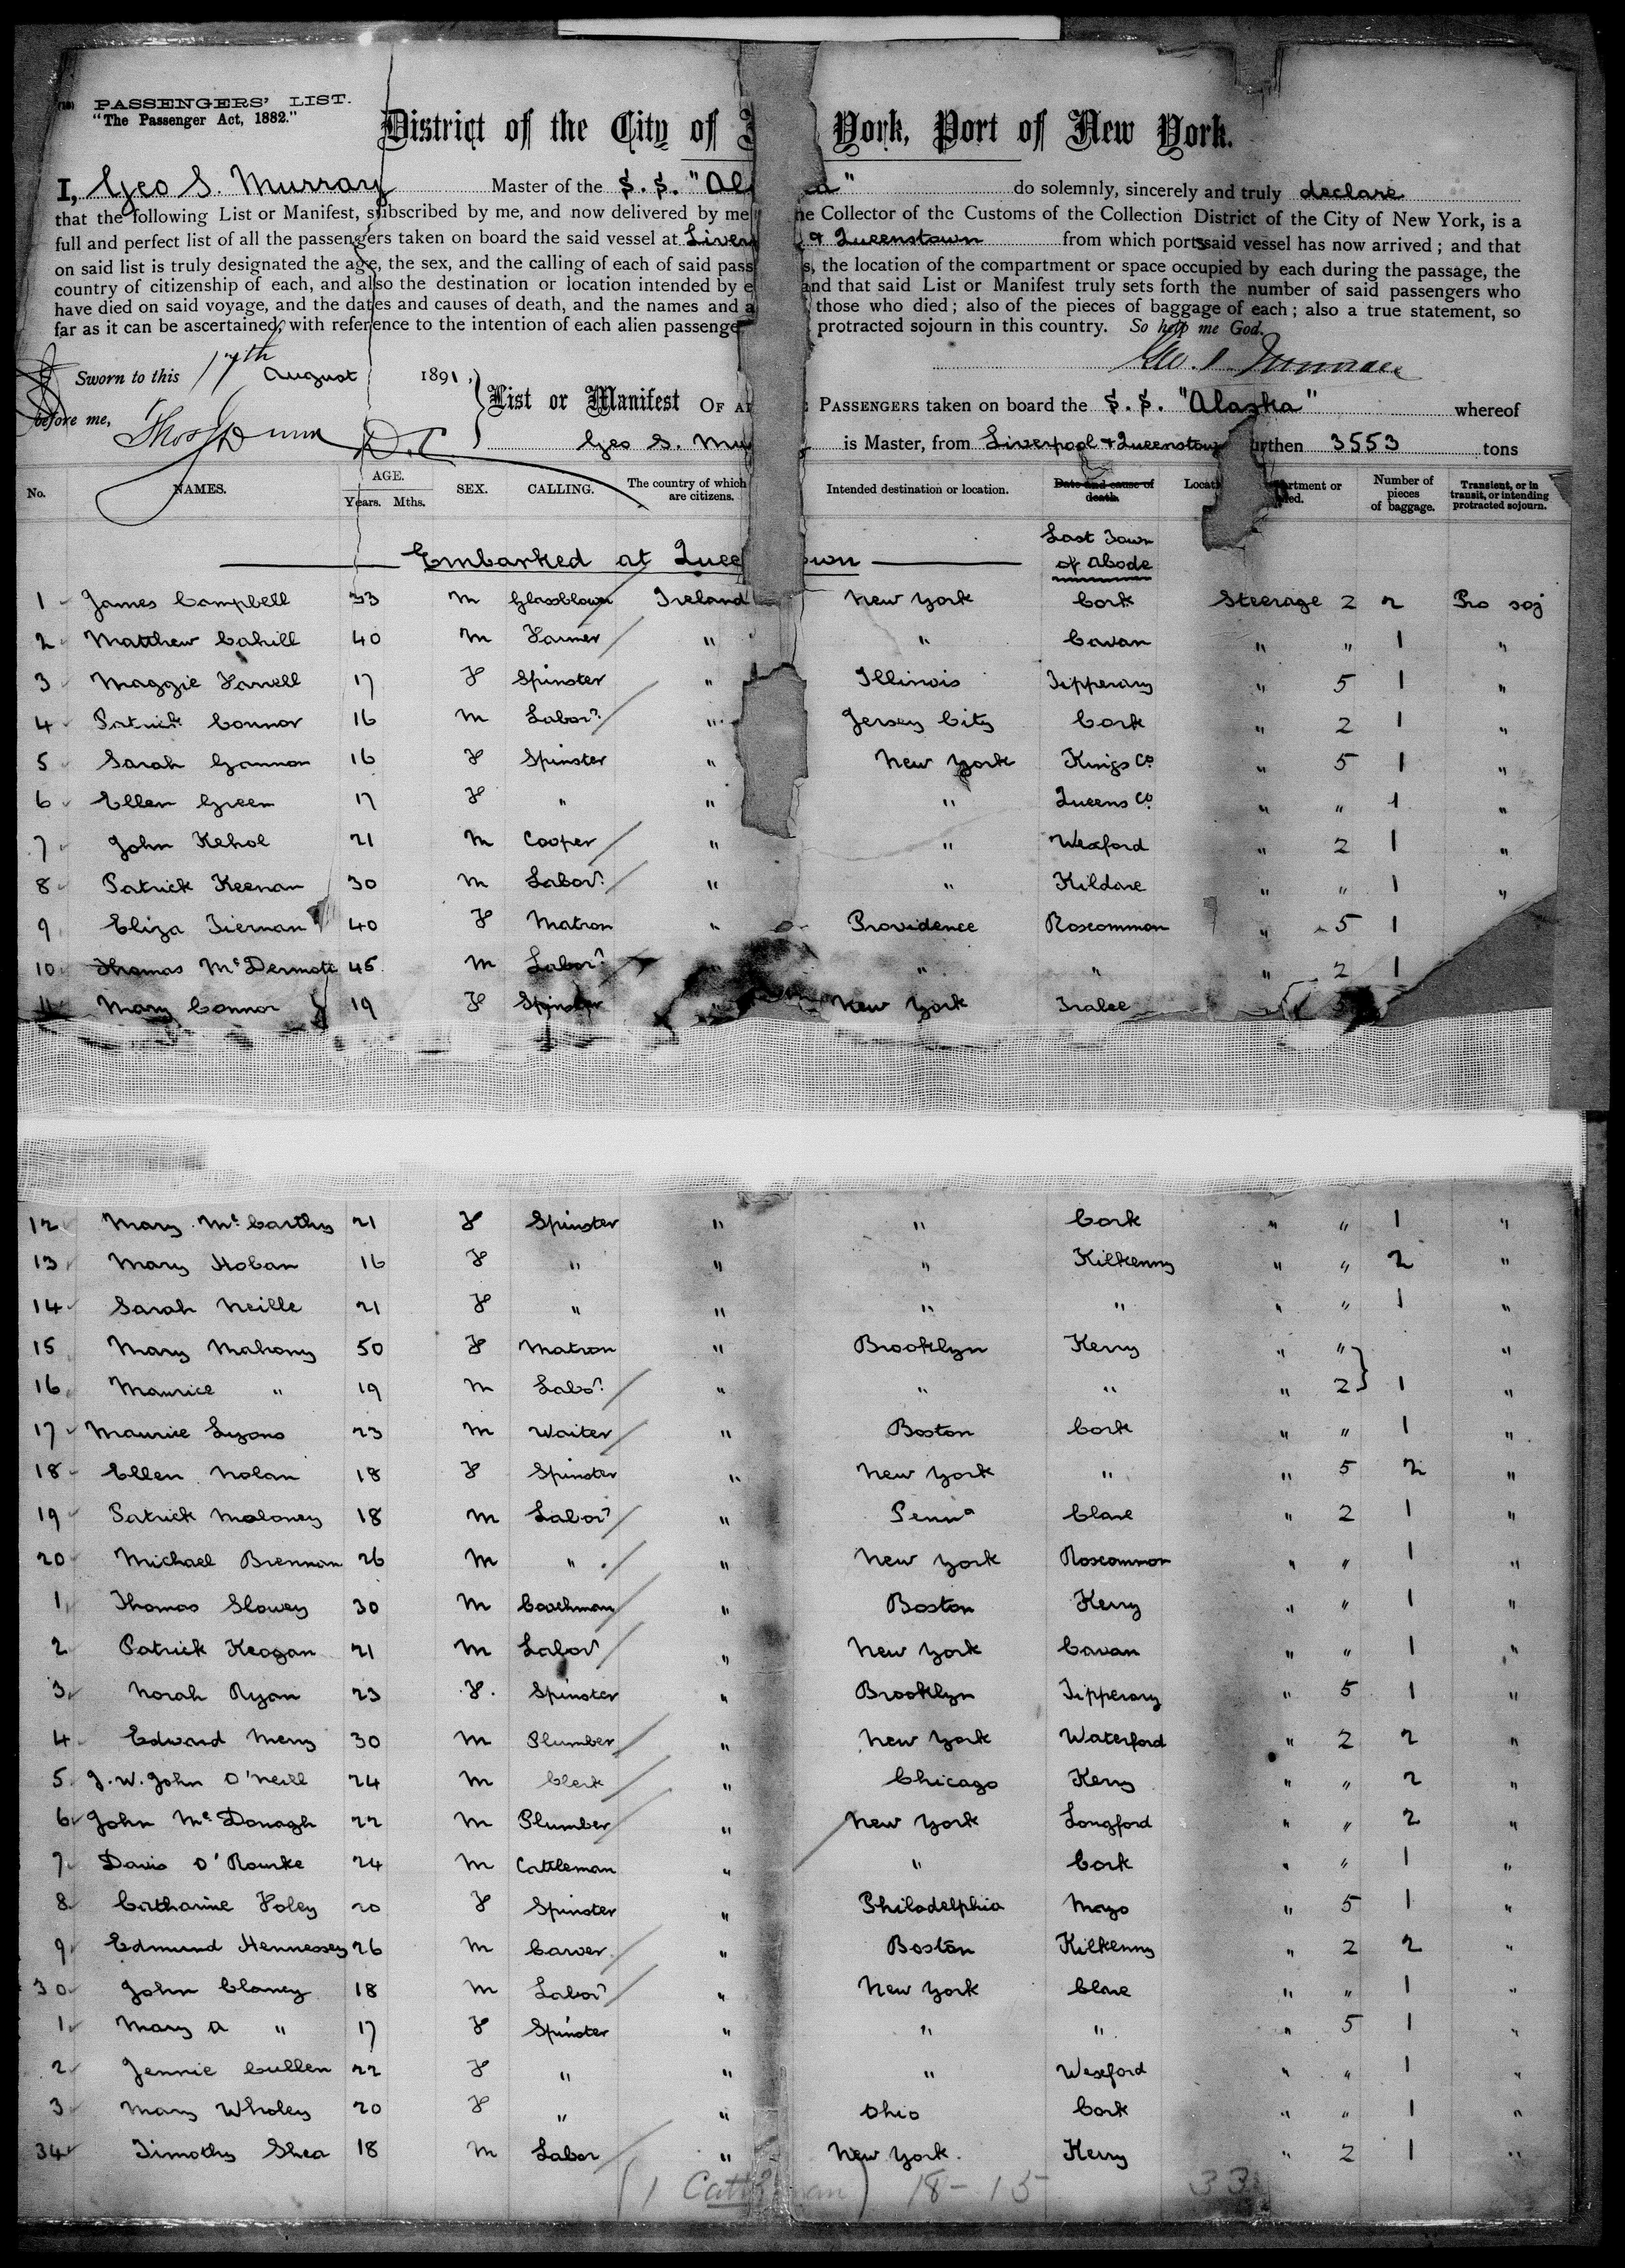 (18) PASSENGERS' LIST.
"The Passenger Act, 1882."
District of the City of York, Port of New York.
I, Geo S. Murray Master of the S.S. "Al a" do solemnly, sincerely and truly declare
that the following List or Manifest, subscribed by me, and now delivered by me he Collector of the Customs of the Collection District of the City of New York, is a
full and perfect list of all the passengers taken on board the said vessel at Liver & Queenstown from which ports said vessel has now arrived; and that
on said list is truly designated the age, the sex, and the calling of each of said pass s, the location of the compartment or space occupied by each during the passage, the
country of citizenship of each, and also the destination or location intended by e and that said List or Manifest truly sets forth the number of said passengers who
have died on said voyage, and the dates and causes of death, and the names and a those who died; also of the pieces of baggage of each; also a true statement, so
far as it can be ascertained, with reference to the intention of each alien passenge protracted sojourn in this country. So help me God.
Sworn to this 17th August 1891, Geo. S. Murray
before me, Thos Dunn D.C.
List or Manifest OF AL PASSENGERS taken on board the S.S. "Alaska" whereof
Geo S. Mu is Master, from Liverpool & Queenstown urthen 3553 tons
No. NAMES. AGE. Years. Mths. SEX. CALLING. The country of which are citizens. Intended destination or location. Date and cause of death Locat artment or ied. Number of pieces of baggage. Transient, or in transit, or intending protracted sojourn.
Embarked at Quee own Last Town of Abode
1 James Campbell 33 M Glassblower Ireland New York Cork Steerage 2 2 Pro soj
2 Matthew Cahill 40 M Farmer " " Cavan " " 1 "
3 Maggie Farrell 17 F Spinster " Illinois Tipperary " 5 1 "
4 Patrick Connor 16 M Labor. " Jersey City Cork " 2 1 "
5 Sarah Gannon 16 F Spinster " New York Kings Co. " 5 1 "
6 Ellen Green 17 F " " " Queens Co. " " 1 "
7 John Kehoe 21 M Cooper " " Wexford " 2 1 "
8 Patrick Keenan 30 M Labor. " " Kildare " " 1 "
9 Eliza Tiernan 40 F Matron " Providence Roscommon " 5 1
10 Thomas McDermott 45 M Labor. " " " 2 1
11 Mary Connor 19 F Spinster " New York Tralee
12 Mary McCarthy 21 F Spinster " " Cork " " 1 "
13 Mary Hoban 16 F " " " Kilkenny " " 2 "
14 Sarah Neille 21 F " " " " " " 1 "
15 Mary Mahony 50 F Matron " Brooklyn Kerry " " "
16 Maurice " 19 M Labr. " " " " 2 } 1 "
17 Maurice Lyons 23 M Waiter " Boston Cork " " 1 "
18 Ellen Nolan 18 F Spinster " New York " " 5 2 "
19 Patrick Moloney 18 M Labor. " Penna Clare " 2 1 "
20 Michael Brennan 26 M " " New York Roscommon " " 1 "
1 Thomas Slowey 30 M Coachman " Boston Kerry " " 1 "
2 Patrick Keogan 21 M Labor. " New York Cavan " " 1 "
3 Norah Ryan 23 F. Spinster " Brooklyn Tipperary " 5 1 "
4 Edward Merry 30 M Plumber " New York Waterford " 2 2 "
5 J.W. John O'Neill 24 M Clerk " Chicago Kerry " " 2 "
6 John McDonagh 22 M Plumber " New York Longford " " 2 "
7 Davis O'Rourke 24 M Cattleman " " Cork " " 1 "
8 Catharine Foley 20 F Spinster " Philadelphia Mayo " 5 1 "
9 Edmund Hennessey 26 M Carver " Boston Kilkenny " 2 2 "
30 John Clancy 18 M Labor. " New York Clare " " 1 "
1 Mary A " 17 F Spinster " " " " 5 1 "
2 Jennie Cullen 22 F " " " Wexford " " 1 "
3 Mary Wholey 20 F " " Ohio Cork " " 1 "
34 Timothy Shea 18 M Labor " New York. Kerry " 2 1 "
(1 Cattleman) 18-15 33